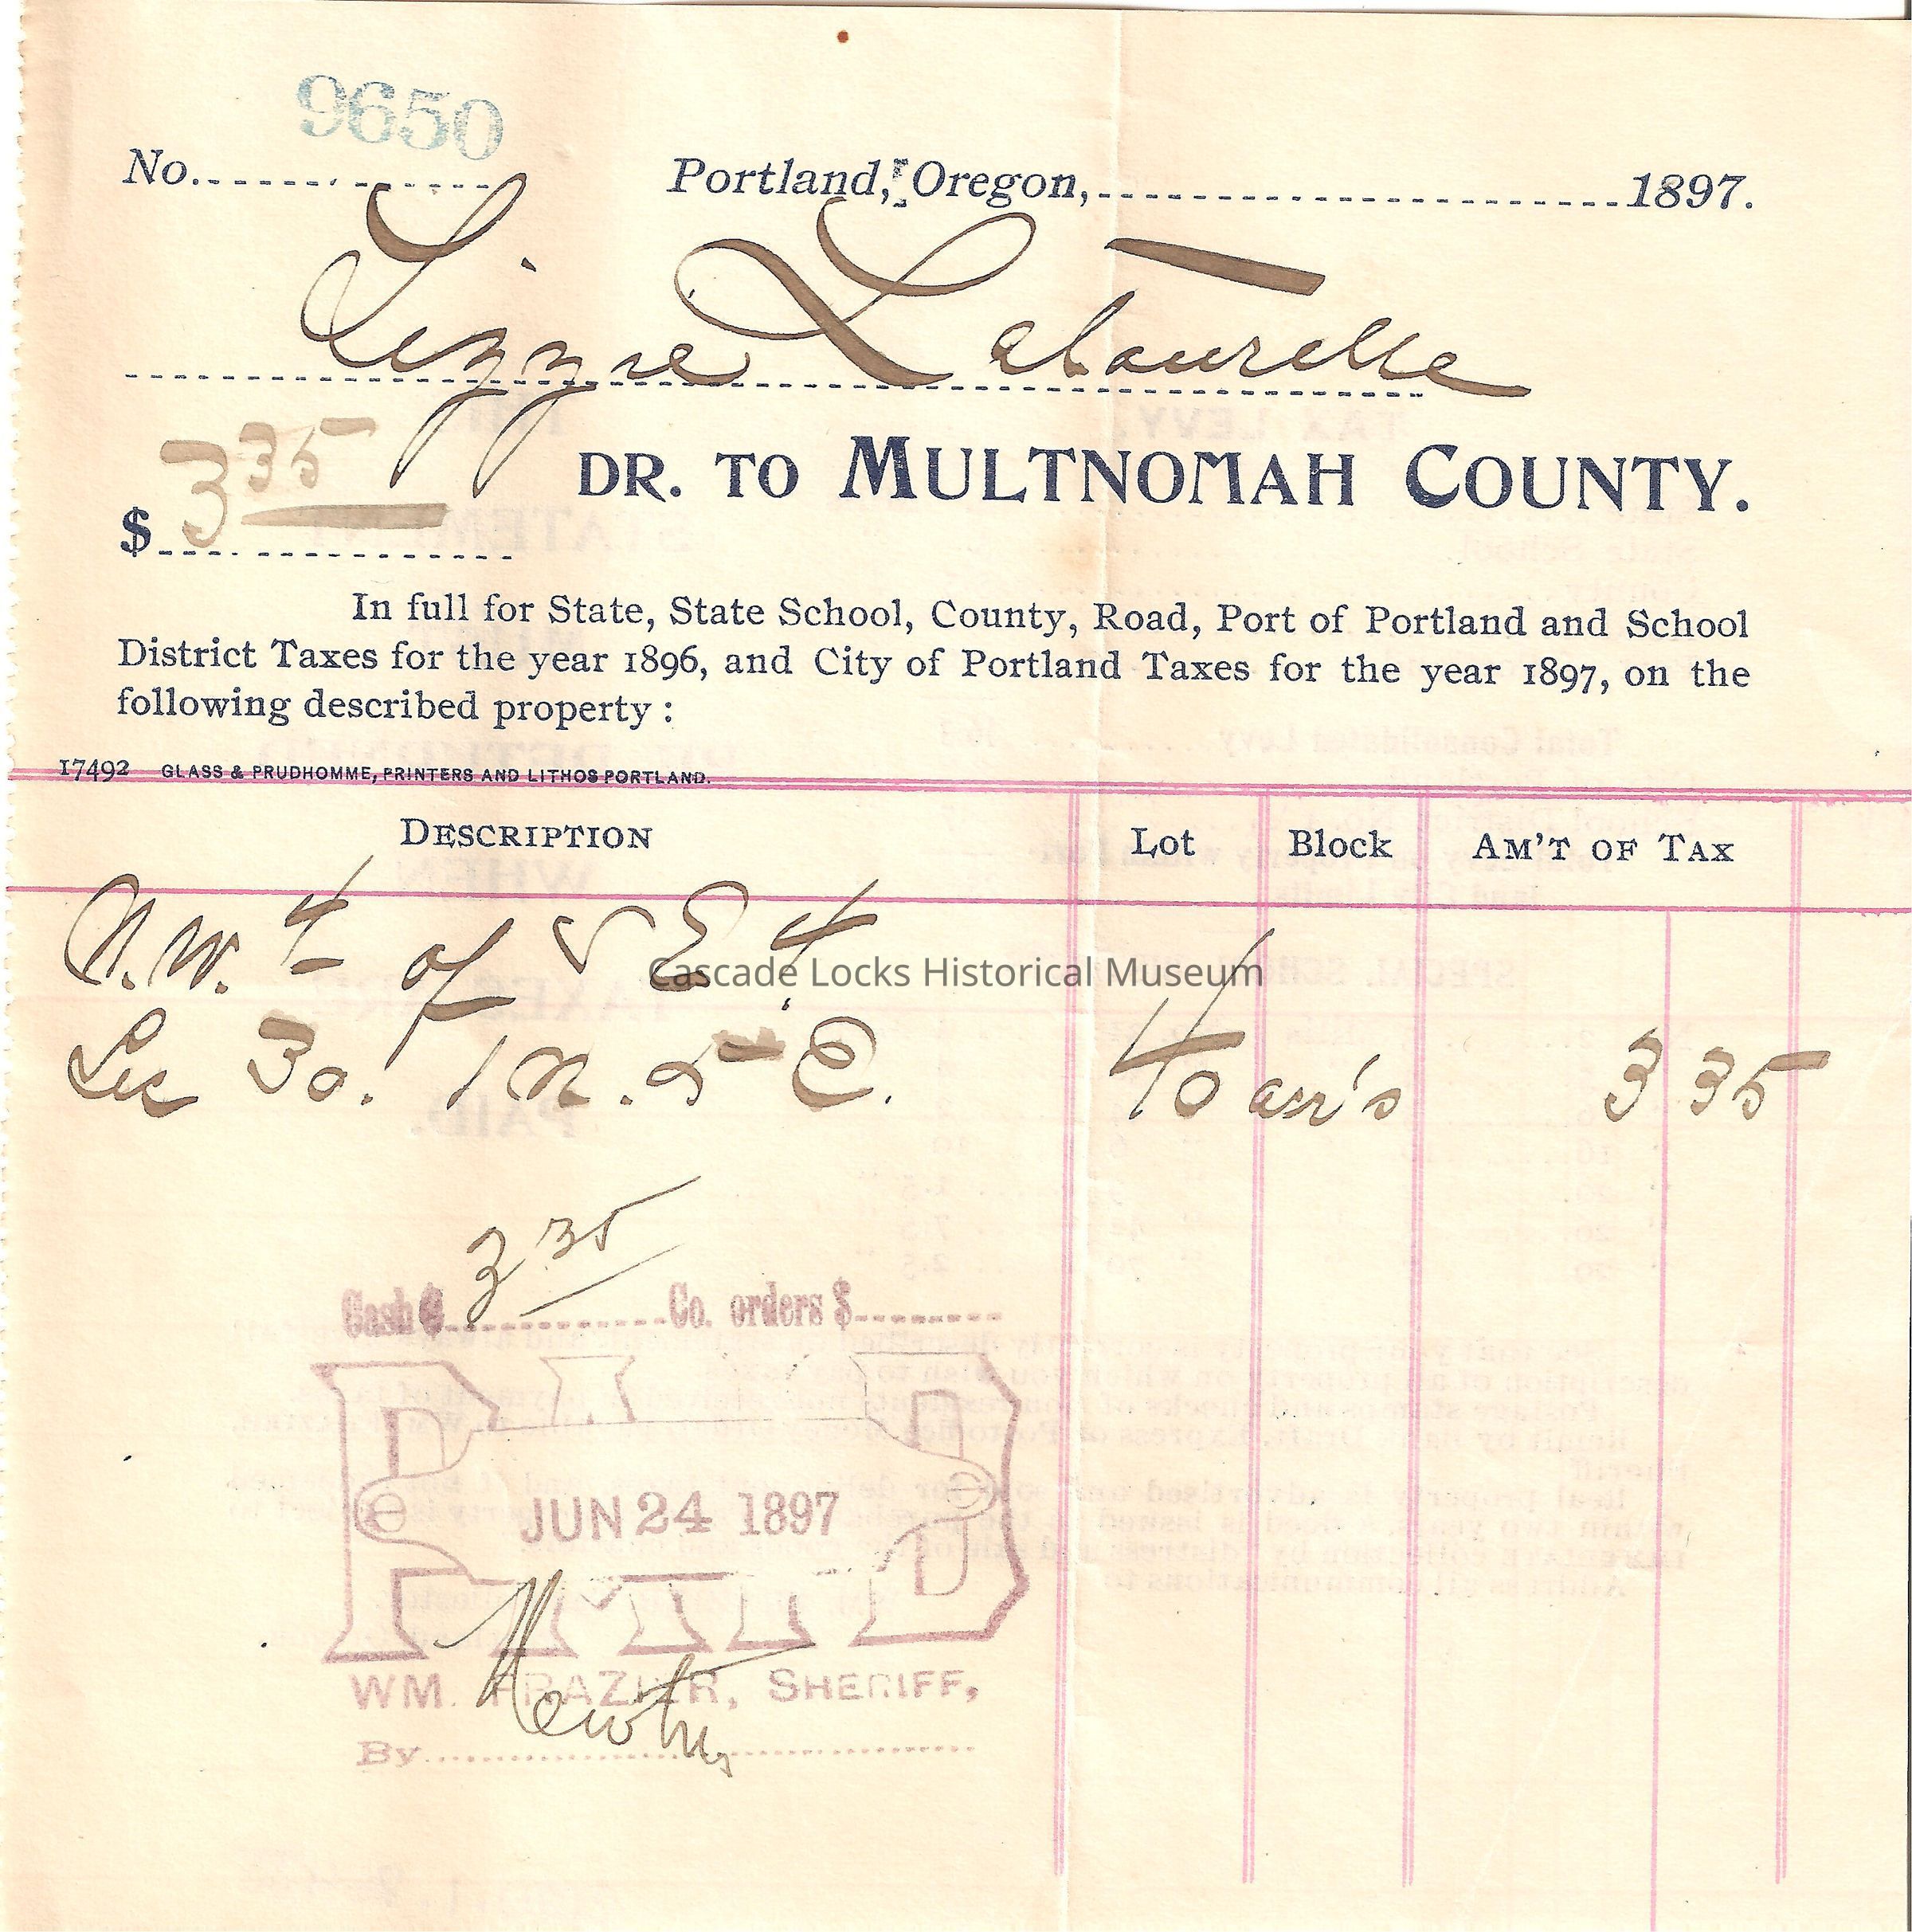 9650
No. Portland, Oregon, 1897.
Lizzie Latourelle
$ 3 35 DR. TO MULTNOMAH COUNTY.
In full for State, State School, County, Road, Port of Portland and School
District Taxes for the year 1896, and City of Portland Taxes for the year 1897, on the
following described property :
17492 GLASS & PRUDHOMME, PRINTERS AND LITHOS PORTLAND.
DESCRIPTION Lot Block AM'T OF TAX
N.W. 4 of S E 4
Cascade Locks Historical Museum
Sec 30. 1 N. 5 E. 40 acr's 3 35
3 35
Cash $ Co. orders $
PAID
JUN 24 1897
WM. FRAZIER, SHERIFF,
By